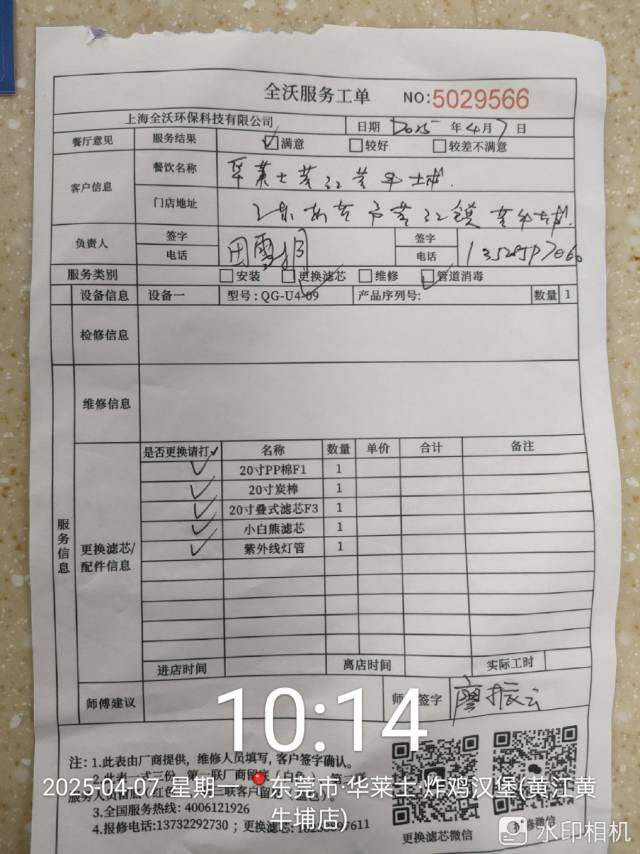 全沃服务工单 NO:5029566
上海全沃环保科技有限公司 日期 2025 年 4 月 7 日
餐厅意见 服务结果 ☑满意 □较好 □较差不满意
客户信息 餐饮名称 华莱士黄江黄牛埔
门店地址 广东东莞市黄江镇黄牛埔
负责人 签字 签字
电话 电话
服务类别 □安装 ☑更换滤芯 □维修 ☑管道消毒
设备信息 设备一 型号:QG-U4-09 产品序列号: 数量 1
检修信息
维修信息
服务信息
更换滤芯/配件信息
是否更换请打✓ 名称 数量 单价 合计 备注
✓ 20寸PP棉F1 1
✓ 20寸炭棒 1
✓ 20寸叠式滤芯F3 1
✓ 小白熊滤芯 1
✓ 紫外线灯管 1
进店时间 离店时间 实际工时
师傅建议 签字 廖振云
10:14
注: 1.此表由厂商提供，维修人员填写, 客户签字确认。
2025-04-07 星期一 东莞市·华莱士·炸鸡汉堡(黄江黄
牛埔店)
3.全国服务热线: 4006121926
4.报修电话:13732292730 ; 更换滤芯:
更换滤芯微信 报修微信
水印相机